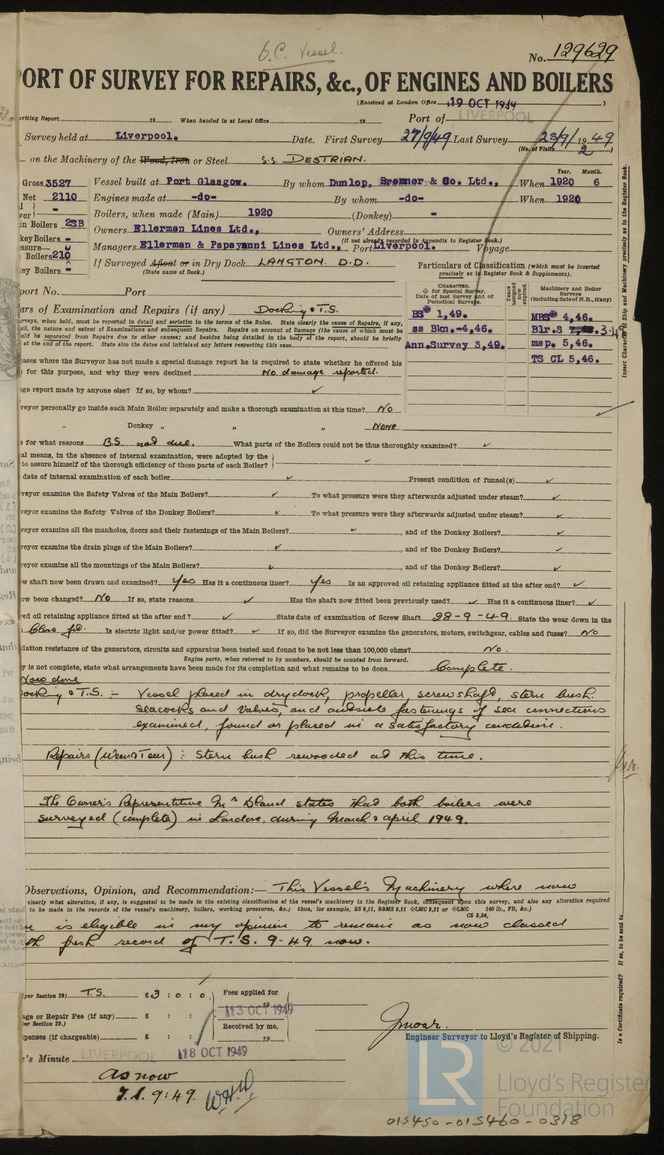 B.C. Vessel.
No. 129629
PORT OF SURVEY FOR REPAIRS, &c., OF ENGINES AND BOILERS
(Received at London Office 19 OCT 1949)
writing Report 19 When handed in at Local Office 19 Port of LIVERPOOL
Survey held at Liverpool. Date. First Survey 27/9/49 Last Survey 28/9/1949
(No. of Visits 2)
on the Machinery of the Wood, Iron or Steel S.S. DESTRIAN.
Gross 3527 Vessel built at Port Glasgow. By whom Dunlop, Bremner & Co. Ltd., When Year. 1920 Month. 6
Net 2110 Engines made at -do- By whom -do- When 1920
Boilers, when made (Main) 1920 (Donkey) -
n Boilers 2SB Owners Ellerman Lines Ltd., Owners' Address
(if not already recorded in Appendix to Register Book.)
key Boilers - Managers Ellerman & Papayanni Lines Ltd., Port Liverpool. Voyage
Boilers 210 If Surveyed Afloat or in Dry Dock LANGTON D.D.
key Boilers - (State name of Dock.)
Particulars of Classification (which must be inserted precisely as in Register Book & Supplements).
port No. Port
CHARACTER. ✠ for Special Survey. Date of last Survey and of Periodical Survey.
Years assigned now expired.
Machinery and Boiler Surveys (including date of N.B., if any)
BS 1,49. MBS 4,46.
ss Bkn.-4,46. Blr.S 3.49
Ann.Survey 3,49. msp. 5,46.
TS CL 5,46.
Insert Character of Ship and Machinery precisely as in the Register Book.
ars of Examination and Repairs (if any) Docking & T.S.
urveys, when held, must be reported in detail and seriatim in terms of the Rules. State clearly the cause of Repairs, if any,
ail, the nature and extent of Examinations and subsequent Repairs. Repairs on account of Damage (the cause of which must be
uld be separated from Repairs due to other causes; and besides being detailed in the body of the report, should be briefly
at the end of the report. State also the dates and initials of any letters respecting this case.
cases where the Surveyor has not made a special damage report he is required to state whether he offered his
for this purpose, and why they were declined No damage reported.
age report made by anyone else? If so, by whom? ✓
veyor personally go inside each Main Boiler separately and make a thorough examination at this time? No
" Donkey " " " NONE
s for what reasons B.S. not due. What parts of the Boilers could not be thoroughly examined? ✓
al means, in the absence of internal examination, were adopted by the
to assure himself of the thorough efficiency of those parts of each Boiler? ✓
date of internal examination of each boiler ✓ Present condition of funnel(s) ✓
veyor examine the Safety Valves of the Main Boilers? ✓ To what pressure were they afterwards adjusted under steam? ✓
veyor examine the Safety Valves of the Donkey Boilers? ✓ To what pressure were they afterwards adjusted under steam? ✓
veyor examine all the manholes, doors and their fastenings of the Main Boilers? ✓, and of the Donkey Boilers? ✓
veyor examine the drain plugs of the Main Boilers? ✓, and of the Donkey Boilers? ✓
veyor examine all the mountings of the Main Boilers? ✓, and of the Donkey Boilers? ✓
w shaft now been drawn and examined? Yes Has it a continuous liner? Yes Is an approved oil retaining appliance fitted at the after end? ✓
ow been changed? No If so, state reasons ✓ Has the shaft now fitted been previously used? ✓ Has it a continuous liner? ✓
ved oil retaining appliance fitted at the after end? ✓ State date of examination of Screw Shaft 28-9-49. State the wear down in the
Close fit. Is electric light and/or power fitted? ✓ If so, did the Surveyor examine the generators, motors, switchgear, cables and fuses? No
ulation resistance of the generators, circuits and apparatus been tested and found to be not less than 100,000 ohms? No.
Engine parts, when referred to by numbers, should be counted from forward.
y is not complete, state what arrangements have been made for its completion and what remains to be done Complete.
Now done
ocking & T.S. :- Vessel placed in drydock, propeller, screwshaft, stern bush.
seacocks and valves, and outside fastenings of sea connections
examined, found or placed in a satisfactory condition.
Repairs (Wear & Tear) : Stern bush rewooded at this time.
The Owner's Representative Mr Bland states that both boilers were
surveyed (complete) in London, during March & April 1949.
Observations, Opinion, and Recommendation:— This Vessel's Machinery where now
clearly what alteration, if any, is suggested to be made in the existing classification of the vessel's machinery in the Register Book, consequent upon this survey, and also any alteration required
to be made in the records of the vessel's machinery, boilers, working pressures, &c.; thus, for example, BS 9,11, BAMS 9,11 or LMC 9,11 or LMC 140 lb., FD, &c.)
CS 9,34,
n is eligible in my opinion to remain as now classed
th fresh record of T.S. 9-49 now.
(per Section 29) T.S. £ 3 : 0 : 0 Fees applied for
13 OCT 1949
age or Repair Fee (if any) £ : :
(per Section 29.) Received by me,
xpenses (if chargeable) £ : : 19
Engineer Surveyor to Lloyd's Register of Shipping.
's Minute LIVERPOOL 18 OCT 1949
As now
T.S. 9:49.
Is a Certificate required? If so, to be sent to
© 2021
LR
Lloyd's Register
Foundation
015450-015460-0318